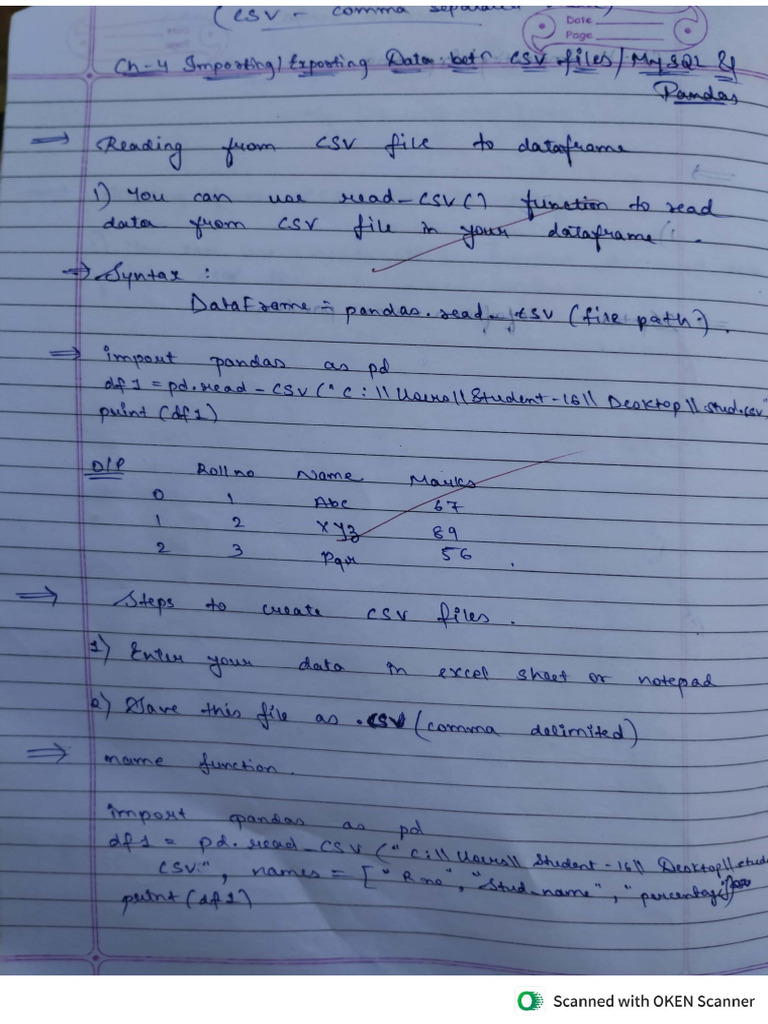 (CSV - comma separated
Date
Page
Ch-4 Importing/Exporting Data betn CSV files/MySQL &
Pandas
⇒ Reading from CSV file to dataframe
1) You can use read-CSV() function to read
data from CSV file in your dataframe.
⇒ Syntax :
DataFrame = pandas.read-csv (file path).
⇒ import pandas as pd
df1 = pd.read-CSV("C:\\Users\\Student-16\\Desktop\\stud.csv"
print (df1)
O/P Rollno Name Marks
0 1 Abc 67
1 2 Xyz 89
2 3 Pqr 56 .
⇒ Steps to create CSV files.
1) Enter your data in excel sheet or notepad
2) Save this file as .CSV (comma delimited)
⇒ name function.
import pandas as pd
df1 = pd.read-CSV ("C:\\Users\\Student-16\\Desktop\\stud
CSV", names = ["R no", "Stud-name", "percentage"
print (df1)
Scanned with OKEN Scanner